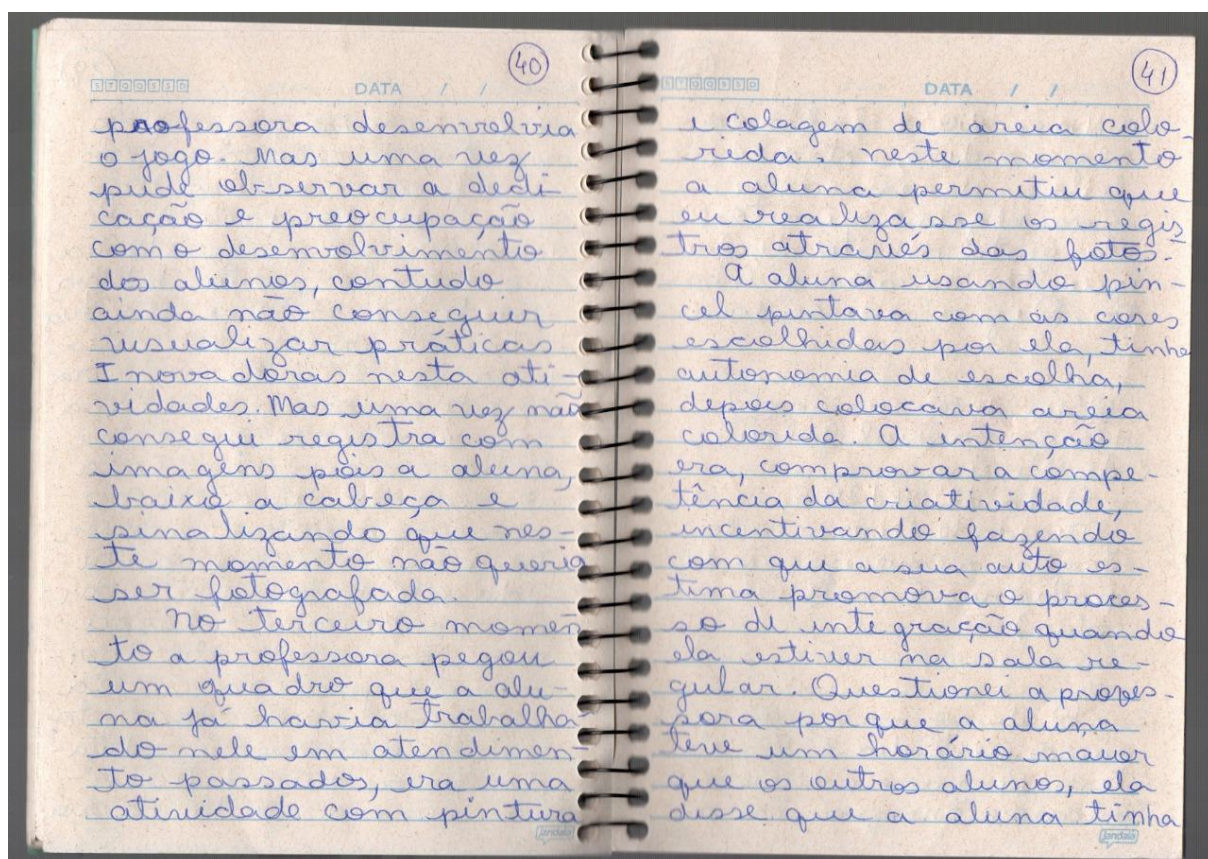 40
STQQSSD
DATA / /
professora desenvolvia
o jogo. Mas uma vez
pude observar a dedi
cação e preocupação
com o desenvolvimento
dos alunos, contudo
ainda não conseguir
visualizar práticas
Inovadoras nesta ati-
vidades. Mas uma vez não
consegui registra com
imagens pois a aluna,
baixa a cabeça e
sinalizando que nes-
te momento não queria
ser fotografada.
No terceiro momen
to a professora pegou
um quadro que a alu-
na já havia trabalha-
do nele em atendimen-
to passados, era uma
atividade com pintura
jandaia
41
STQQSSD
DATA / /
e colagem de areia colo-
rida, neste momento
a aluna permitiu que
eu realizasse os regis
tros através das fotos.
A aluna usando pin-
cel pintava com as cores
escolhidas por ela, tinha
autonomia de escolha,
depois colocava areia
colorida. A intenção
era, comprovar a compe-
tência da criatividade,
incentivando fazendo
com que a sua auto es-
tima promova o proces-
so de integração quando
ela estiver na sala re-
gular. Questionei a profes-
sora por que a aluna
teve um horário maior
que os outros alunos, ela
disse que a aluna tinha
jandaia